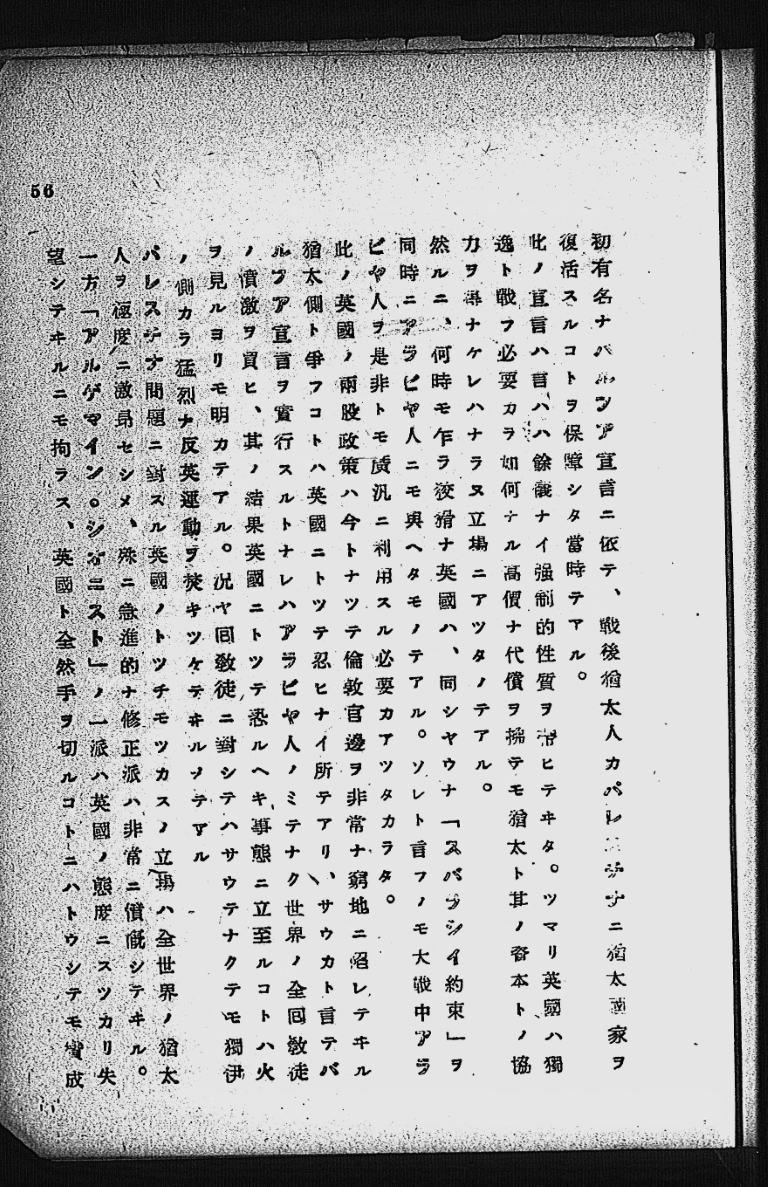 初有名ナバルフア宣言ニ依テ、戰後猶太人カパレスチナニ猶太國家ヲ
復活スルコトヲ保障シタ當時テアル。
此ノ宣言ハ言ハハ餘儀ナイ强制的性質ヲ帶ヒテヰタ。ツマリ英國ハ獨
逸ト戰フ必要カラ如何ナル高價ナ代償ヲ拂テモ猶太ト其ノ資本トノ協
力ヲ尋ナケレハナラヌ立場ニアツタノテアル。
然ルニ、何時モ乍ラ狡猾ナ英國ハ、同シヤウナ「スバラシイ約束」ヲ
同時ニアラビヤ人ニモ與ヘタモノテアル。ソレト言フノモ大戰中アラ
ビヤ人ヲ是非トモ廣汎ニ利用スル必要カアツタカラタ。
此ノ英國ノ兩股政策ハ今トナツテ倫敦官邊ヲ非常ナ窮地ニ陷レテヰル
猶太側ト爭フコトハ英國ニトツテ忍ヒナイ所テアリ、サウカト言テバ
ルフア宣言ヲ實行スルトナレハアラビヤ人ノミテナク世界ノ全回敎徒
ノ憤激ヲ買ヒ、其ノ結果英國ニトツテ恐ルヘキ事態ニ立至ルコトハ火
ヲ見ルヨリモ明カテアル。況ヤ回敎徒ニ對シテハサウテナクテモ獨伊
ノ側カラ猛烈ナ反英運動ヲ焚キツケテヰルノテアル
パレスチナ問題ニ對スル英國ノトツチモツカスノ立場ハ全世界ノ猶太
人ヲ極度ニ激昂セシメ、殊ニ急進的ナ修正派ハ非常ニ憤慨シテヰル。
一方「アルゲマイン。シオニスト」ノ一派ハ英國ノ態度ニスツカリ失
望シテヰルニモ拘ラス、英國ト全然手ヲ切ルコトニハトウシテモ賛成
56